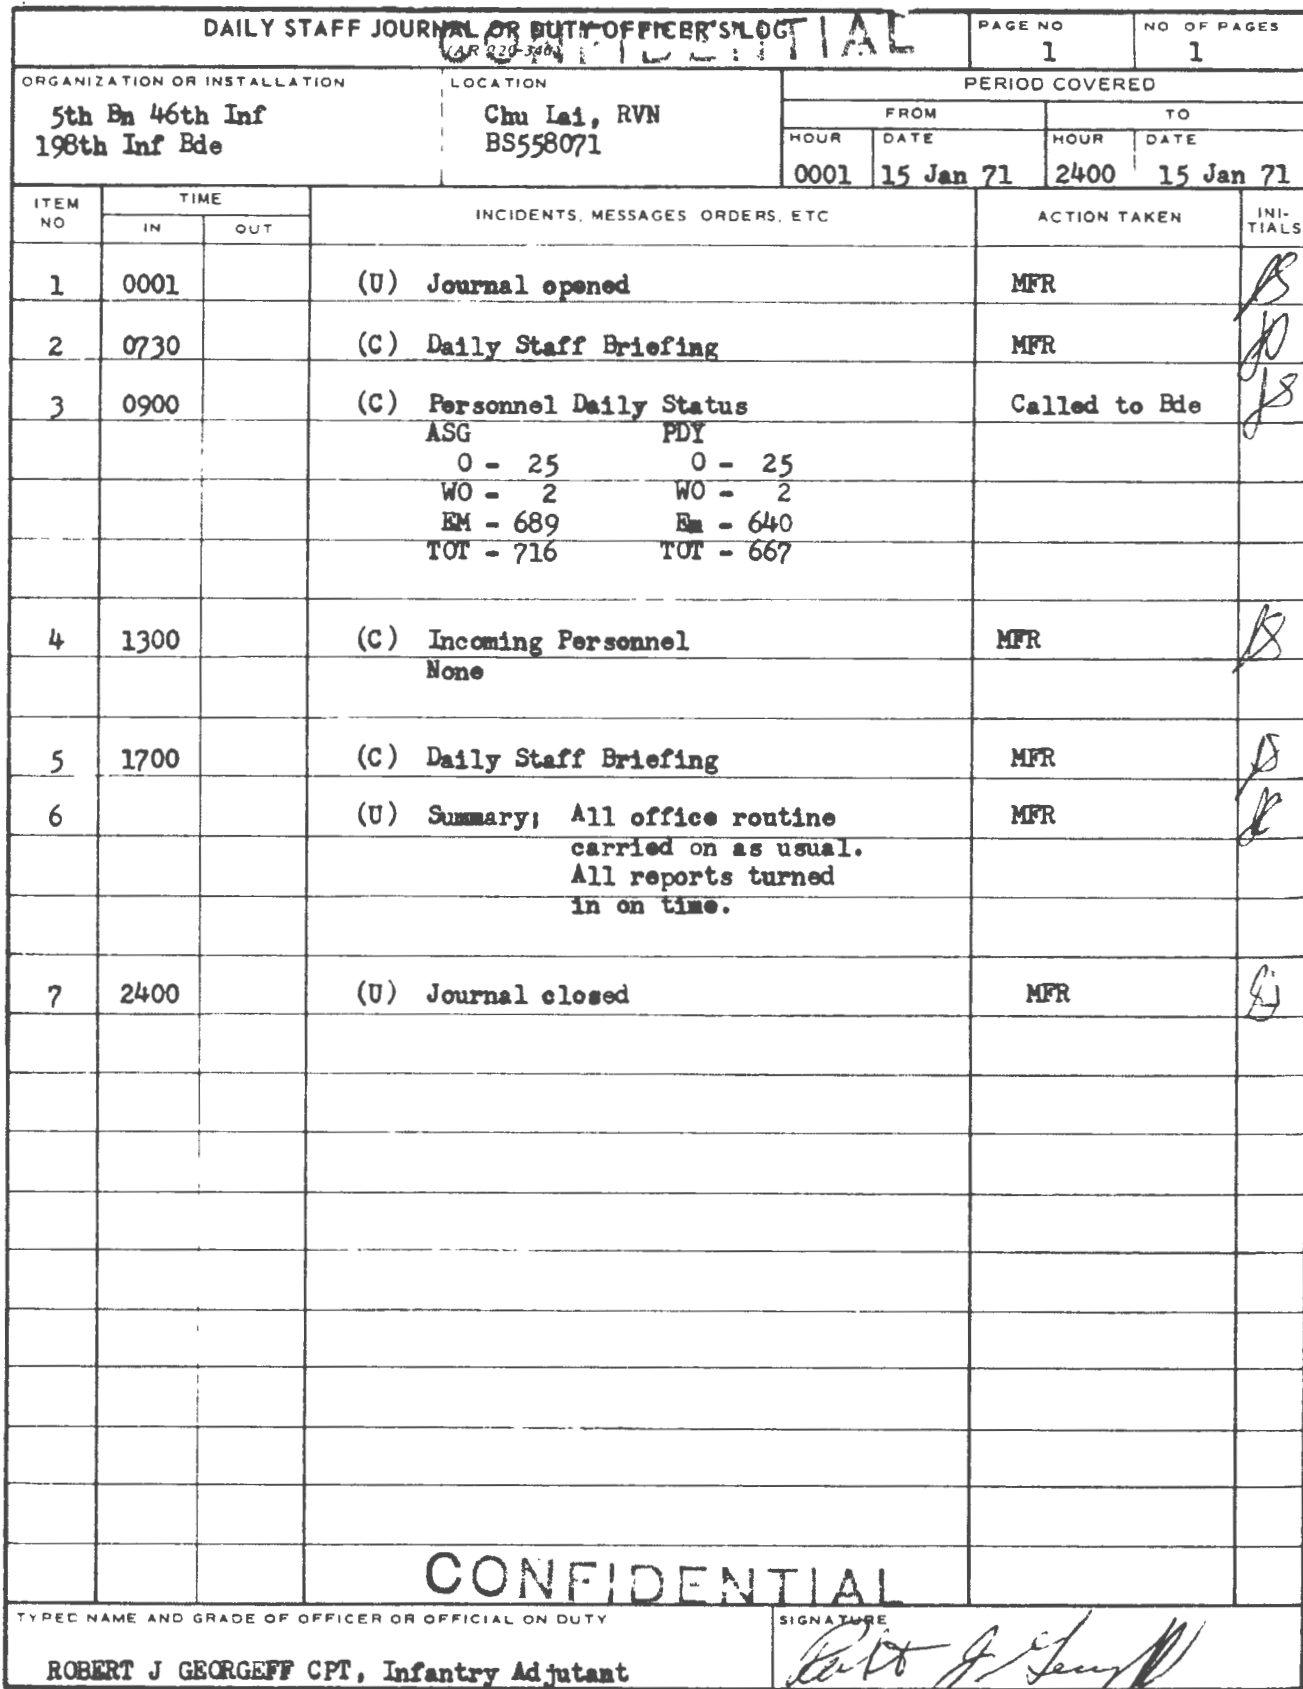 DAILY STAFF JOURNAL OR DUTY OFFICER'S LOG
CONFIDENTIAL
(AR 220-346)
PAGE NO
1
NO OF PAGES
1
ORGANIZATION OR INSTALLATION
5th Bn 46th Inf
198th Inf Bde
LOCATION
Chu Lai, RVN
BS558071
PERIOD COVERED
FROM
TO
HOUR DATE HOUR DATE
0001 15 Jan 71 2400 15 Jan 71
ITEM NO
TIME
IN OUT
INCIDENTS, MESSAGES ORDERS, ETC
ACTION TAKEN
INI-
TIALS
1 0001 (U) Journal opened MFR
2 0730 (C) Daily Staff Briefing MFR
3 0900 (C) Personnel Daily Status Called to Bde
ASG PDY
O - 25 O - 25
WO - 2 WO - 2
EM - 689 Em - 640
TOT - 716 TOT - 667
4 1300 (C) Incoming Personnel MFR
None
5 1700 (C) Daily Staff Briefing MFR
6 (U) Summary; All office routine MFR
carried on as usual.
All reports turned
in on time.
7 2400 (U) Journal closed MFR
CONFIDENTIAL
TYPED NAME AND GRADE OF OFFICER OR OFFICIAL ON DUTY
ROBERT J GEORGEFF CPT, Infantry Adjutant
SIGNATURE